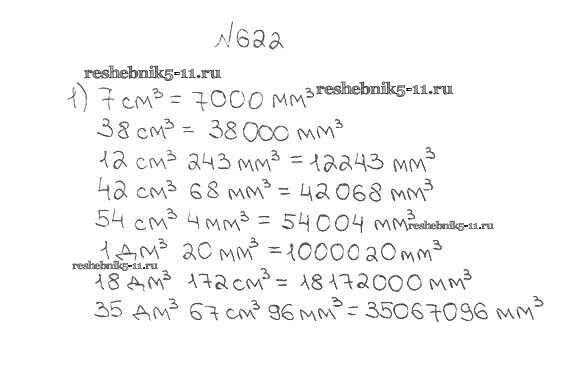 №622
reshebnik5-11.ru
1) 7 см³ = 7000 мм³ reshebnik5-11.ru
38 см³ = 38000 мм³
12 см³ 243 мм³ = 12243 мм³
42 см³ 68 мм³ = 42068 мм³
54 см³ 4 мм³ = 54004 мм³ reshebnik5-11.ru
1 дм³ 20 мм³ = 1000020 мм³
reshebnik5-11.ru
18 дм³ 172 см³ = 18172000 мм³
35 дм³ 67 см³ 96 мм³ = 35067096 мм³